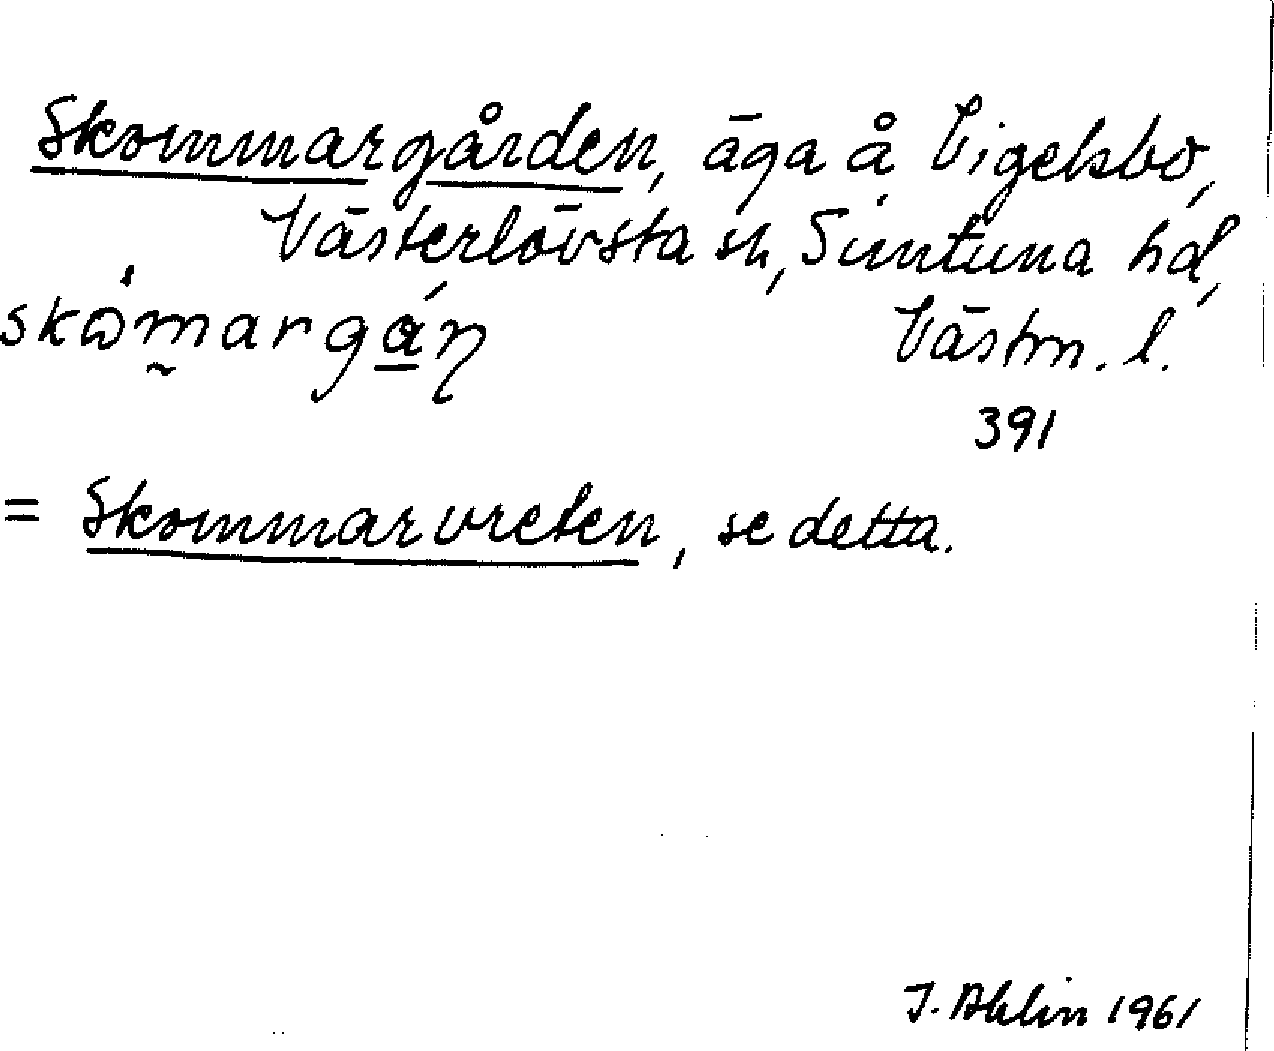 Skommargården, äga å Vigelsbo,
Västerlövsta sn, Simtuna hd,
skὼm̰argá̱ꞃ Västm. l.
391
= Skommarvreten, se detta.
J. Ahlin 1961